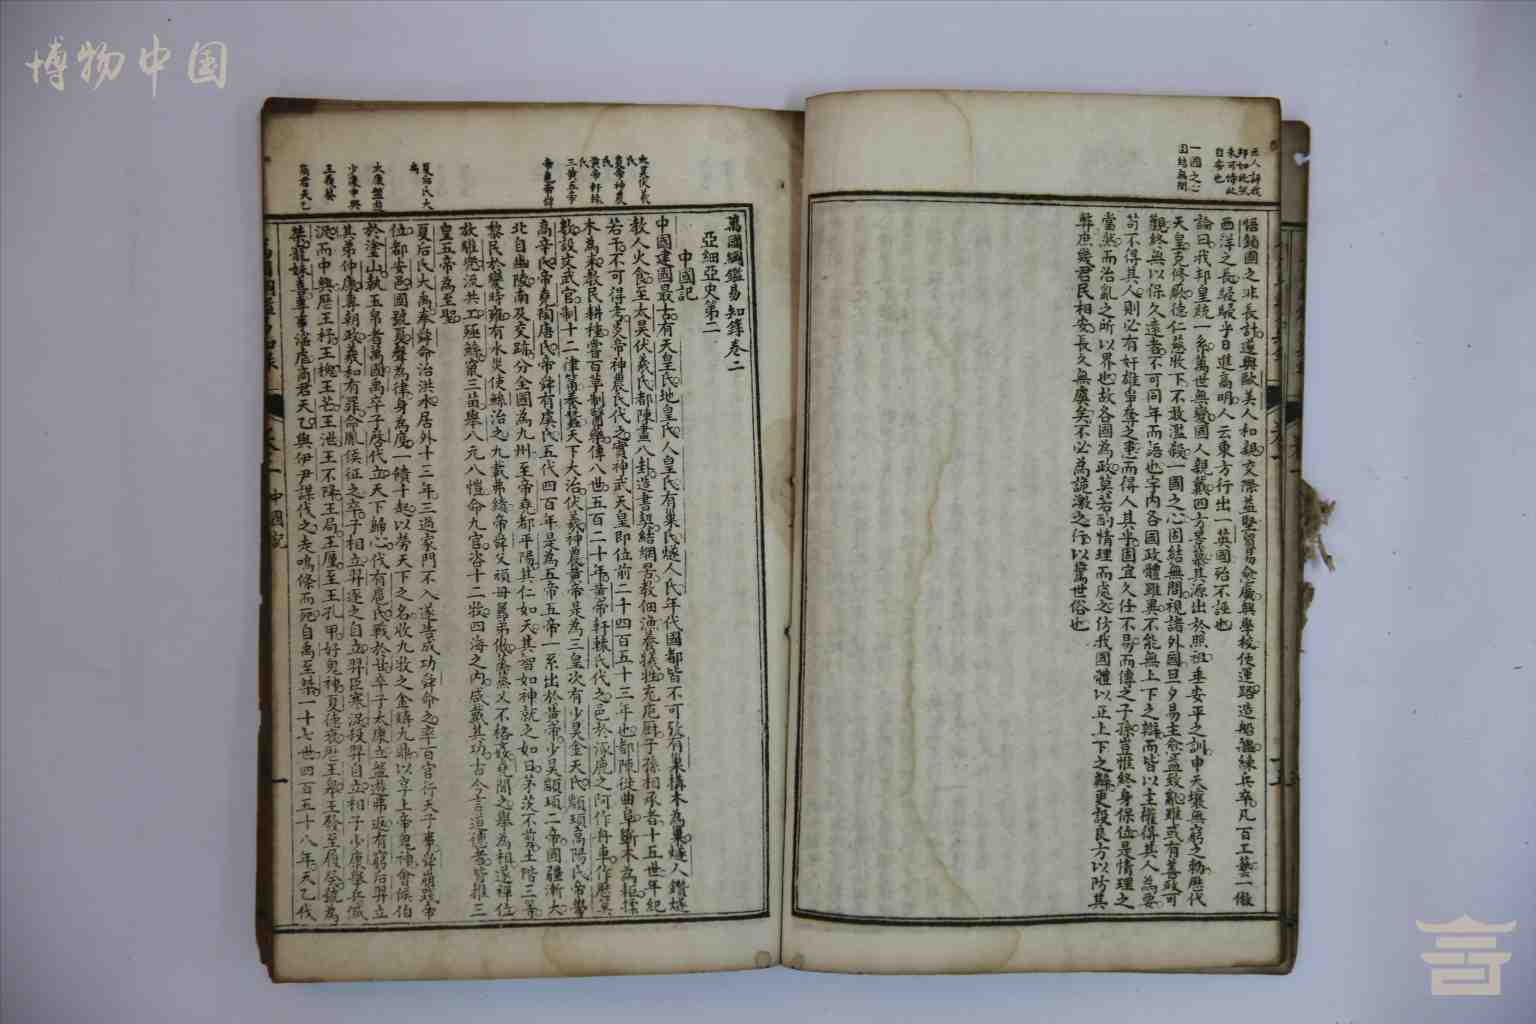 博物中国
西人評我
邦如此說
未可恃以
自安也
一國之心
固結無間
悟鎖國之非長計遂與歐美人和親交際益堅貿易愈廣興學校使運路造船艦練兵卒凡百工藝一倣
西洋之長駸駸乎日進高明人云東方行出一英國殆不誣也
論曰我邦皇統一系萬世無變國人親戴四方景慕其源出於照祖垂安平之訓申天壤無窮之勅歷代
天皇克修厥德仁慈收下不敢濫殺一國之心固結無間視諸外國旦夕易主愈益致亂雖或有善政可
觀終無以保久遠者不可同年而語也宇內各國政體雖異不能無上下之辯而皆以主權得其人為要
苟不得其人則必有奸雄爭奪之事而得人其半固宜久任不易而傳之子孫豈惟終身保位是情理之
當然而治亂之所以界也故各國為政莫若酌情理而處之仿我國體以正上下之辭更設良方以防其
弊庶幾君民相安長久無虞矣不必為詭激之行以驚世俗也
萬國綱鑑易知錄卷二
亞細亞史第二
中國記
中國建國最古有天皇氏地皇氏人皇氏有巢氏燧人氏年代國都皆不可攷有巢構木為巢燧人鑽燧
教人火食至太昊伏羲氏都陳畫八卦造書契結網罟教佃漁養犧牲充庖廚子孫相承者十五世年紀
若干不可得考炎帝神農氏代之實神武天皇即位前二千四百五十三年也都陳徙曲阜斷木為耜揉
木為耒教民耕種嘗百草制醫藥傳八世五百二十年黃帝軒轅氏代之邑於涿鹿之阿作舟車作曆算
數設文武官制十二律篇養蠶天下大治伏羲神農黃帝是為三皇次有少昊金天氏顓頊高陽氏帝嚳
高辛氏帝堯陶唐氏帝舜有虞氏五代四百年是為五帝五帝一系出於黃帝少昊顓頊二帝國疆漸大
北自幽陵南及交趾分全國為九州至帝堯都平陽其仁如天其智如神就之如日茅茨不剪土階三等
黎民於變時雍有水災使鯀治之九載弗績帝舜父頑母嚚弟傲烝烝乂不格姦堯聞之舉為相遂禪位
放驩兜流共工殛鯀竄三苗舉八元八愷命九官咨十二牧四海之內咸戴其功古今言道德者皆推三
皇五帝為至聖
夏后氏大禹奉舜命治洪水居外十三年三過家門不入遂告成功舜命之率百官行天子事舜崩踐帝
位都安邑國號夏聲為律身為度一饋十起以勞天下之名收九牧之金鑄九鼎以享上帝鬼神會侯伯
於塗山執玉帛者萬國禹卒子啓代立天下歸心伐有扈氏戰於甘卒子太康立盤遊弗返有窮后羿立
其弟仲康專朝政羲和有罪命胤侯征之卒子相立羿逐之自立羿臣寒浞殺羿自立相子少康舉兵滅
浞而中興歷王杼王槐王芒王泄王不降王扃王廑至王孔甲好鬼神夏德衰歷王皋王發至履癸號為
桀寵妹喜事事淫虐商君天乙與伊尹謀伐之走鳴條而死自禹至桀一十七世四百五十八年天乙伐
太昊伏羲
氏
炎帝神農
氏
黃帝軒轅
氏
三黃五帝
帝堯帝舜
夏后氏大
禹
太康盤遊
少康中興
王履癸
商君天乙
中國記
一